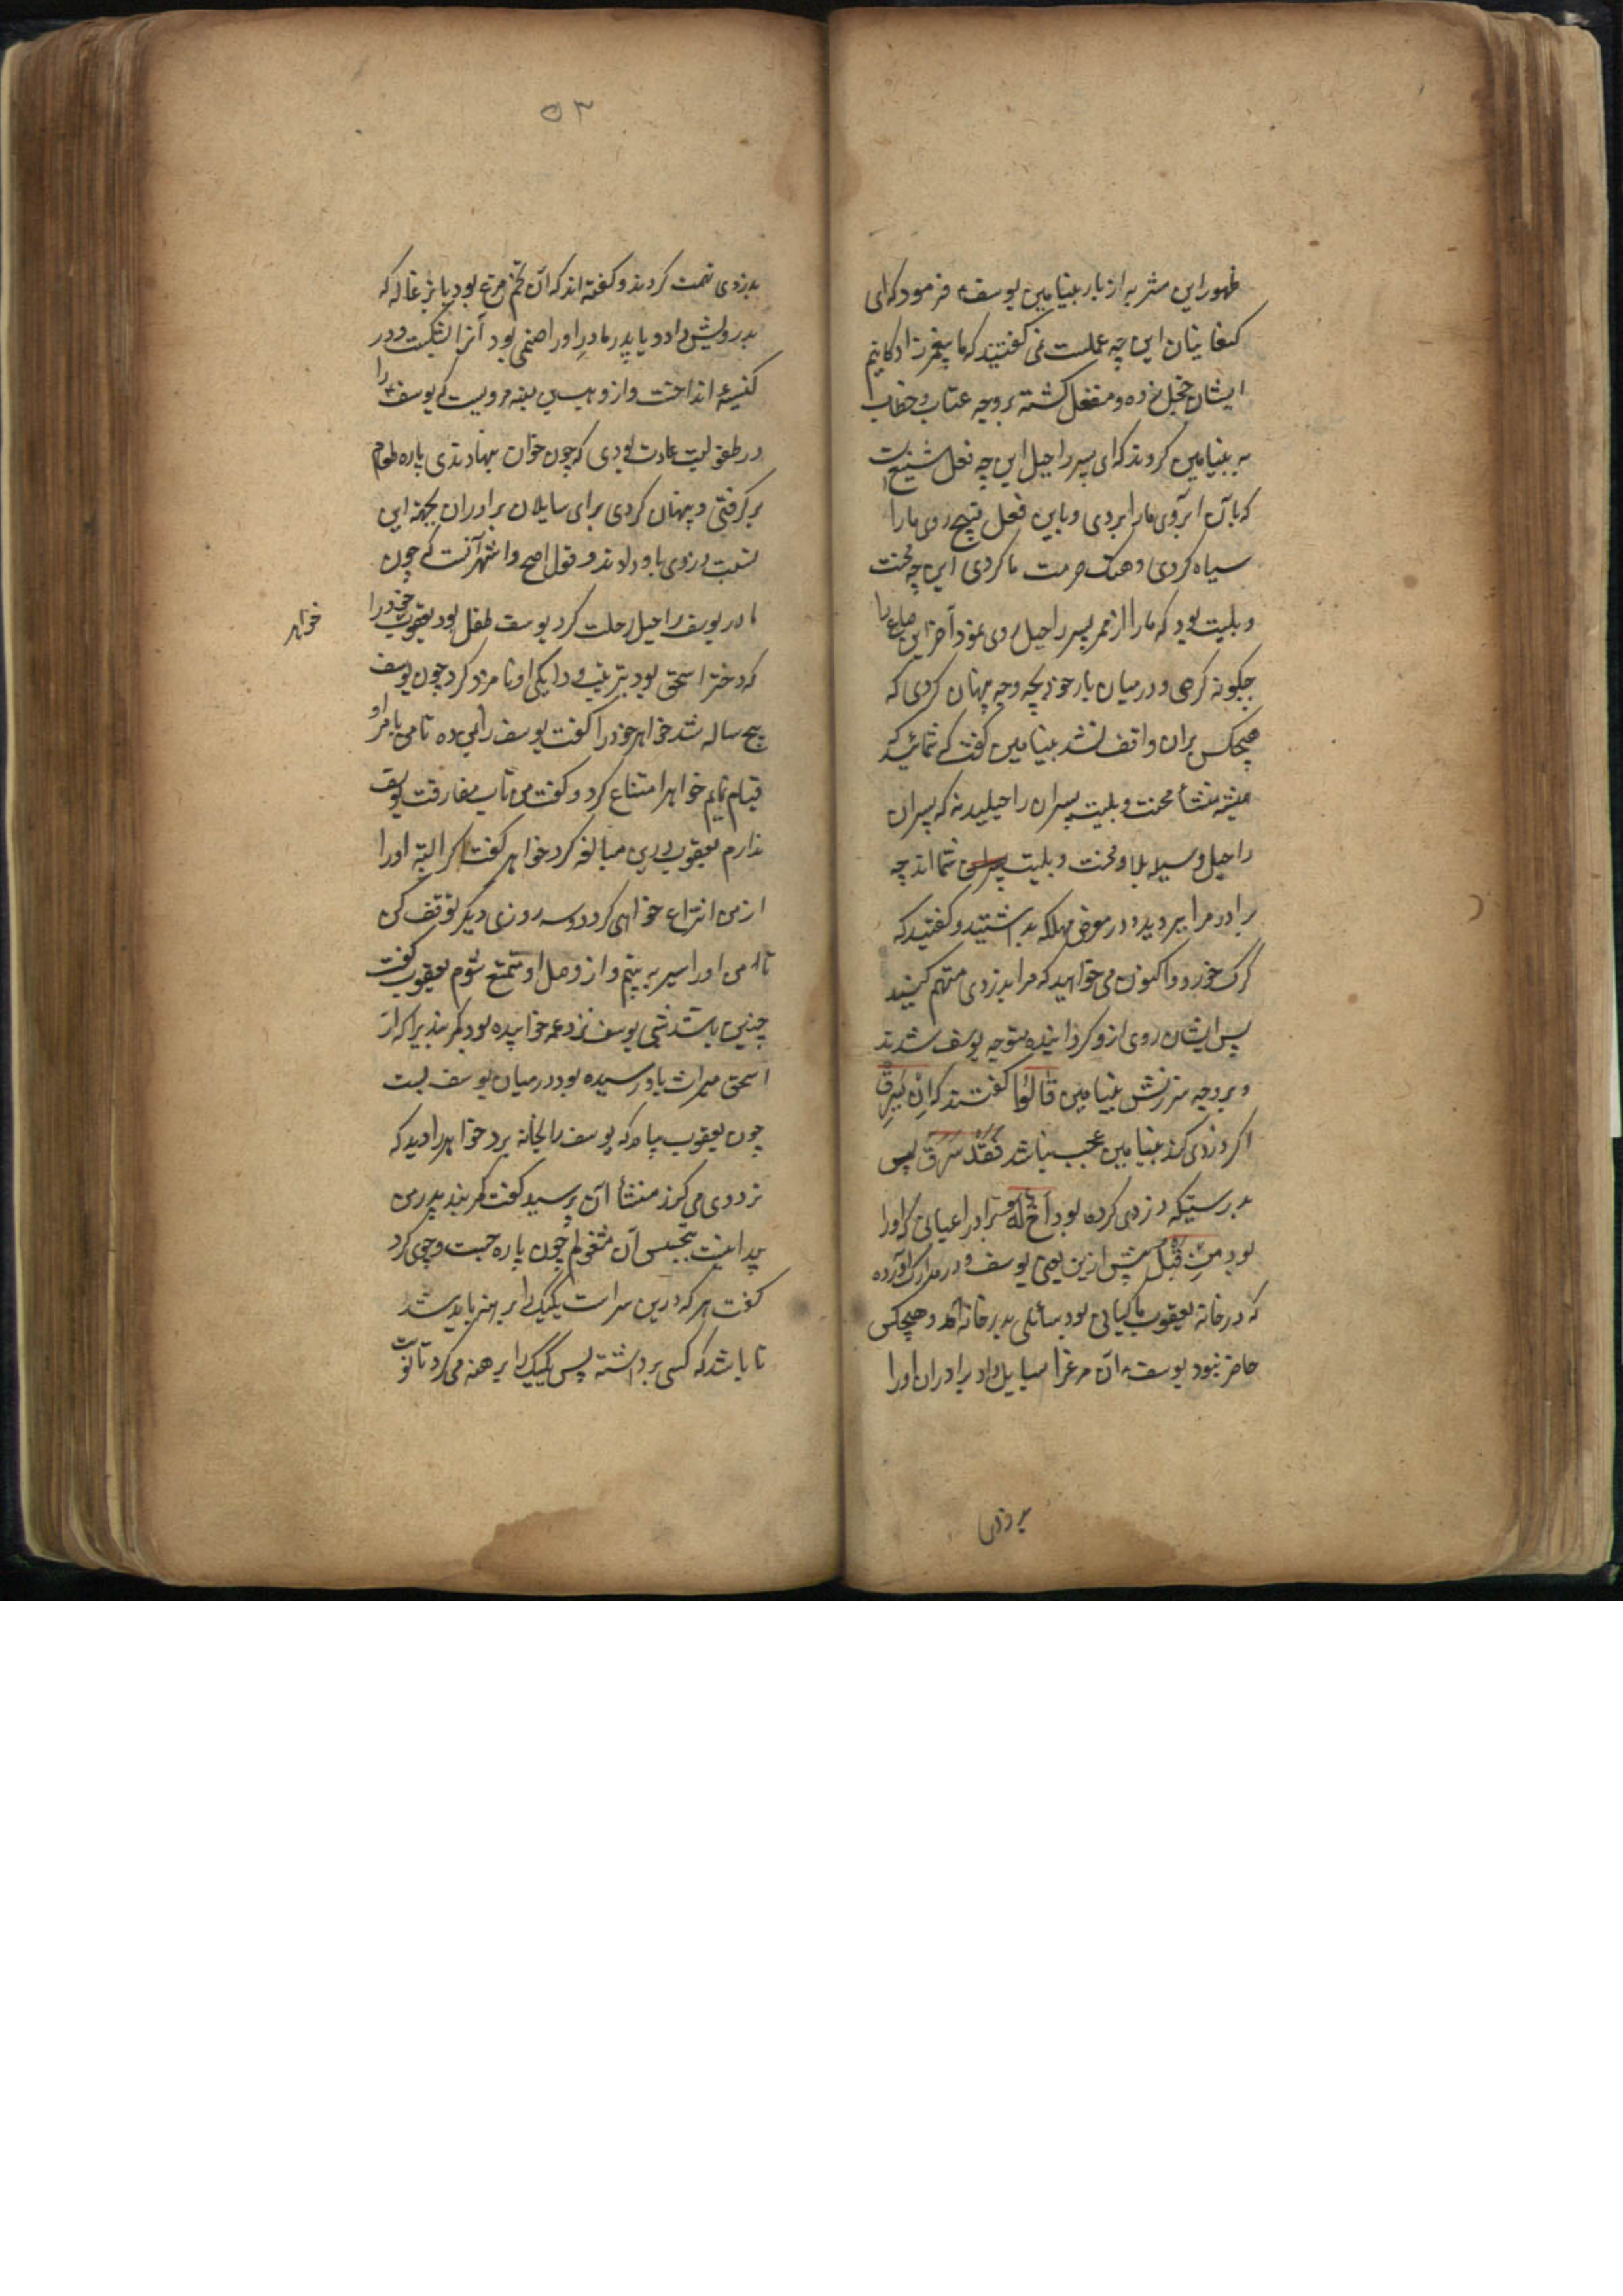 ظهور این مشربه از بار بنیامین یوسف۴ فرمود که ای
کنعانیان این چه عملست نمی گفتید که ما پیغمبرزادگانیم
ایشان خجل زده و منفعل گشته بر وجه عتاب و خطاب
به بنیامین کردند که ای پسر راحیل این چه فعل شنیع است
که بآن آبروی ما را بردی و باین فعل قبیح روی ما را
سیاه کردی و هتک حرمت ما کردی این چه محنت
و بلیت بود که ما را از ممر پسر راحیل روی نمود آخر این صاع را
چگونه گرفتی و در میان بار خود بچه وجه پنهان کردی که
هیچکس بران واقف نشد بنیامین گفت که شمائید که
همیشه منشأ محنت و بلیت پسران راحیلید نه که پسران
راحیل وسیله بلا و محنت و بلیت شما اند چه
برادر مرا ببردید و در معرض مهلکه بداشتید و گفتید که
گرگ خورد و اکنون می خواهید که مرا بدزدی متهم کنید
پس ایشان روی ازو گردانیده متوجه یوسف شدند
و بر وجه سرزنش بنیامین قَالُوا گفتند که اِنْ یَسْرِقْ
اگر دزدی کند بنیامین عجب نباشد فَقَدْ سَرَقَ پس
بدرستیکه دزدی کرده بود اَخٌ لَهُ برادر اعیانی که او را
بود مِنْ قَبْلُ پیش ازین یعنی یوسف و در مدارک آورده
که در خانه یعقوب ماکیانی بود سائلی بدر خانه آمد و هیچکس
حاضر نبود یوسف۴ آن مرغرا بسایل داد برادران او را
بدزدی
۵۳
بدزدی تهمت کردند و گفته اند که آن تخم مرغ بود یا بزغاله که
بدرویش داد و یا پدر مادر او را صنمی بود آنرا بشکست و در
کنیسه انداخت و از وهب بن منبه مرویست که یوسف۴ را
در طفولیت عادت بودی که چون خوان بنهادندی پاره طعام
برگرفتی و پنهان کردی برای سایلان برادران بجهة این
نسبت دزدی باو دادند و قول اصح و اشهر آنست که چون
مادر یوسف راحیل رحلت کرد یوسف طفل بود یعقوب خود را
خواهر
که دختر اسحق بود بتربیت و دایگی او نامزد کرد چون یوسف
پنج ساله شد خواهر خود را گفت یوسف را بمن ده تا من بامر او
قیام نمایم خواهر امتناع کرد و گفت من تاب مفارقت یوسف
ندارم یعقوب درین مبالغه کرد خواهر گفت اگر البته او را
از من انتزاع خواهی کرد دو سه روزی دیگر توقف کن
تا من او را سیر ببینم و از وصل او متمتع شوم یعقوب گفت
چنین باشد شبی یوسف نزد عمه خوابیده بود کمربند یرا که از
اسحق میراث باو رسیده بود در میان یوسف بست
چون یعقوب بیامد که یوسف را بخانه برد خواهر را دید که
ترددی می کرد منشأ آن پرسید گفت کمربند پدر من
پیدا نیست بتجسس آن مشغولم چون پاره جست و جوی کرد
گفت هر که درین سراست یکیک را برهنه باید شد
تا باشد که کسی برداشته پس یکیک را برهنه می کرد تا نوبت